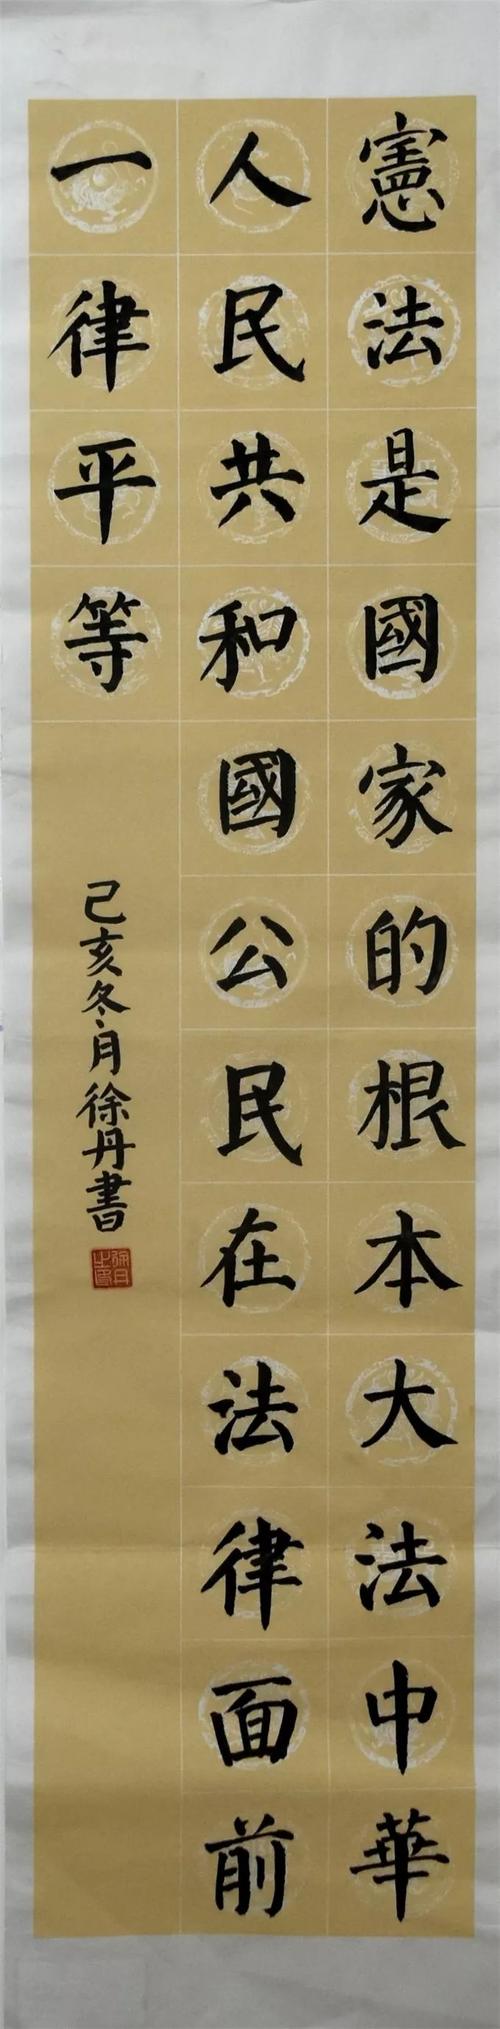 憲法是國家的根本大法中華
人民共和國公民在法律面前
一律平等
己亥冬月徐丹書
徐丹之印